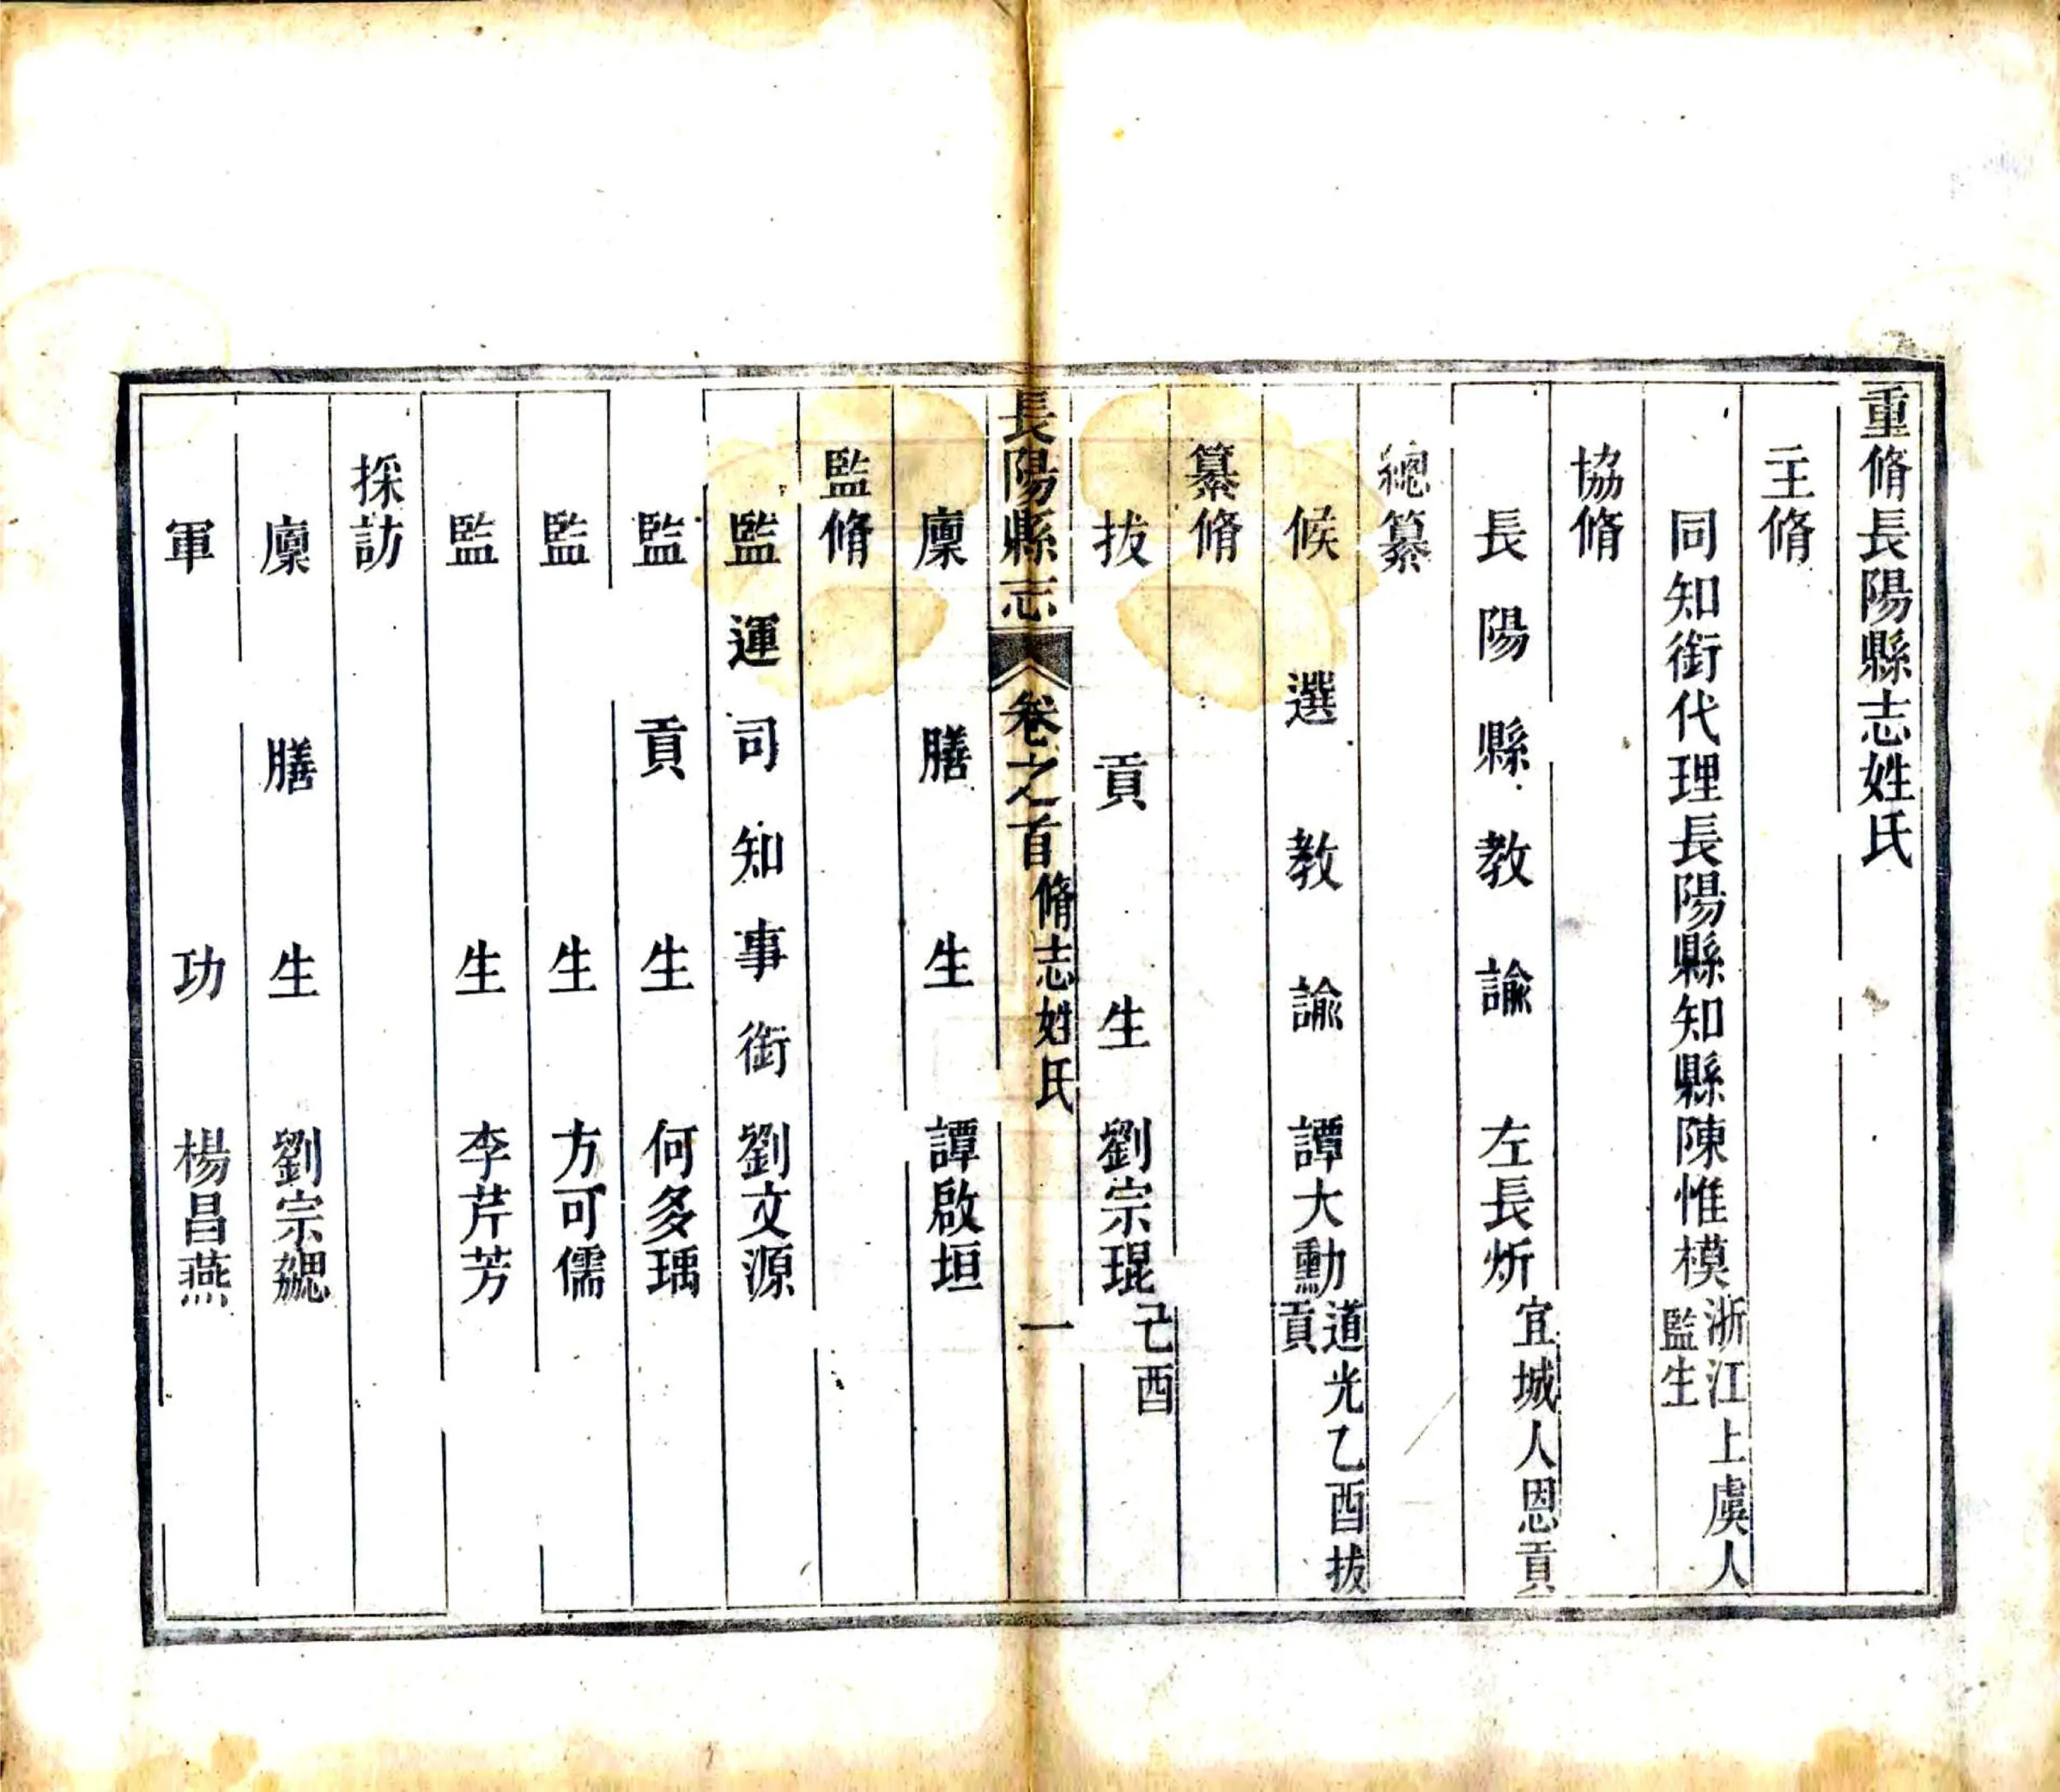 重脩長陽縣志姓氏
主脩
同知銜代理長陽縣知縣陳惟模浙江上虞人
監生
協脩
長陽縣教諭左長炘宜城人恩貢
總纂
候選教諭譚大勳道光乙酉拔
貢
纂脩
拔貢生劉宗琨己酉
長陽縣志 卷之首脩志姓氏 一
廩膳生譚啟垣
監脩
監運司知事銜劉文源
監貢生何多瑀
監生方可儒
監生李芹芳
採訪
廩膳生劉宗勰
軍功楊昌燕